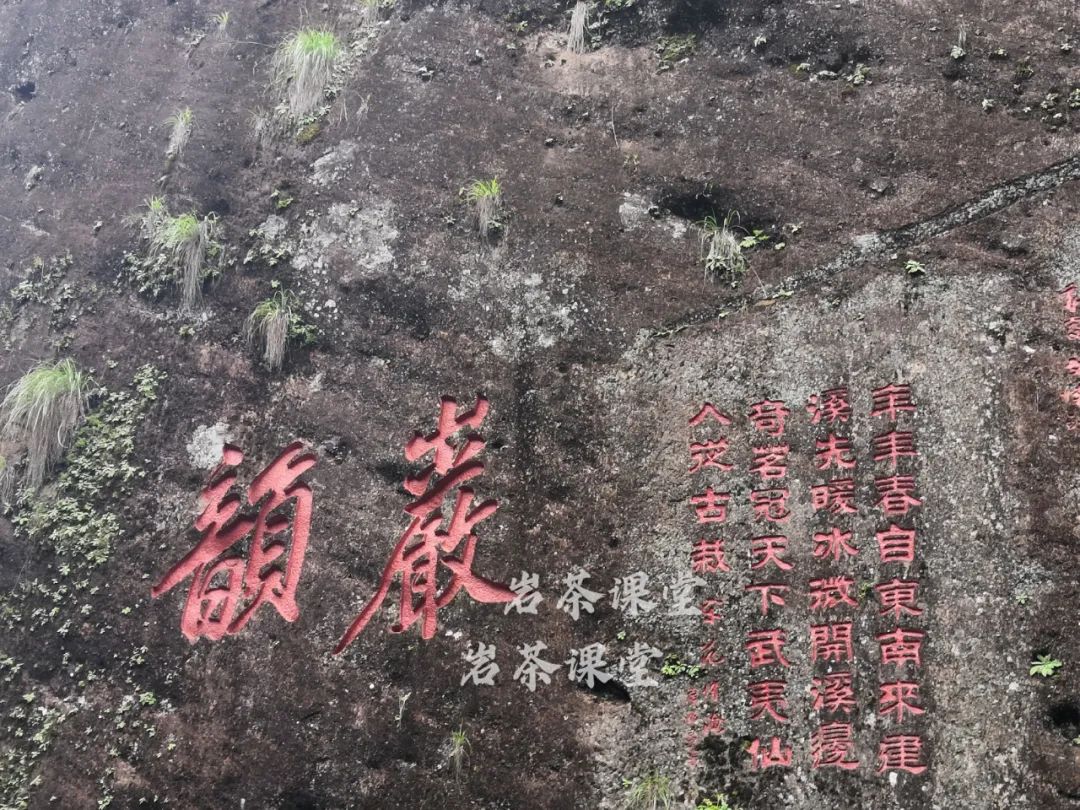 年年春自東南來建
溪先暖冰微開溪邊
奇茗冠天下武夷仙
人從古栽
巖韻
岩茶课堂
岩茶课堂